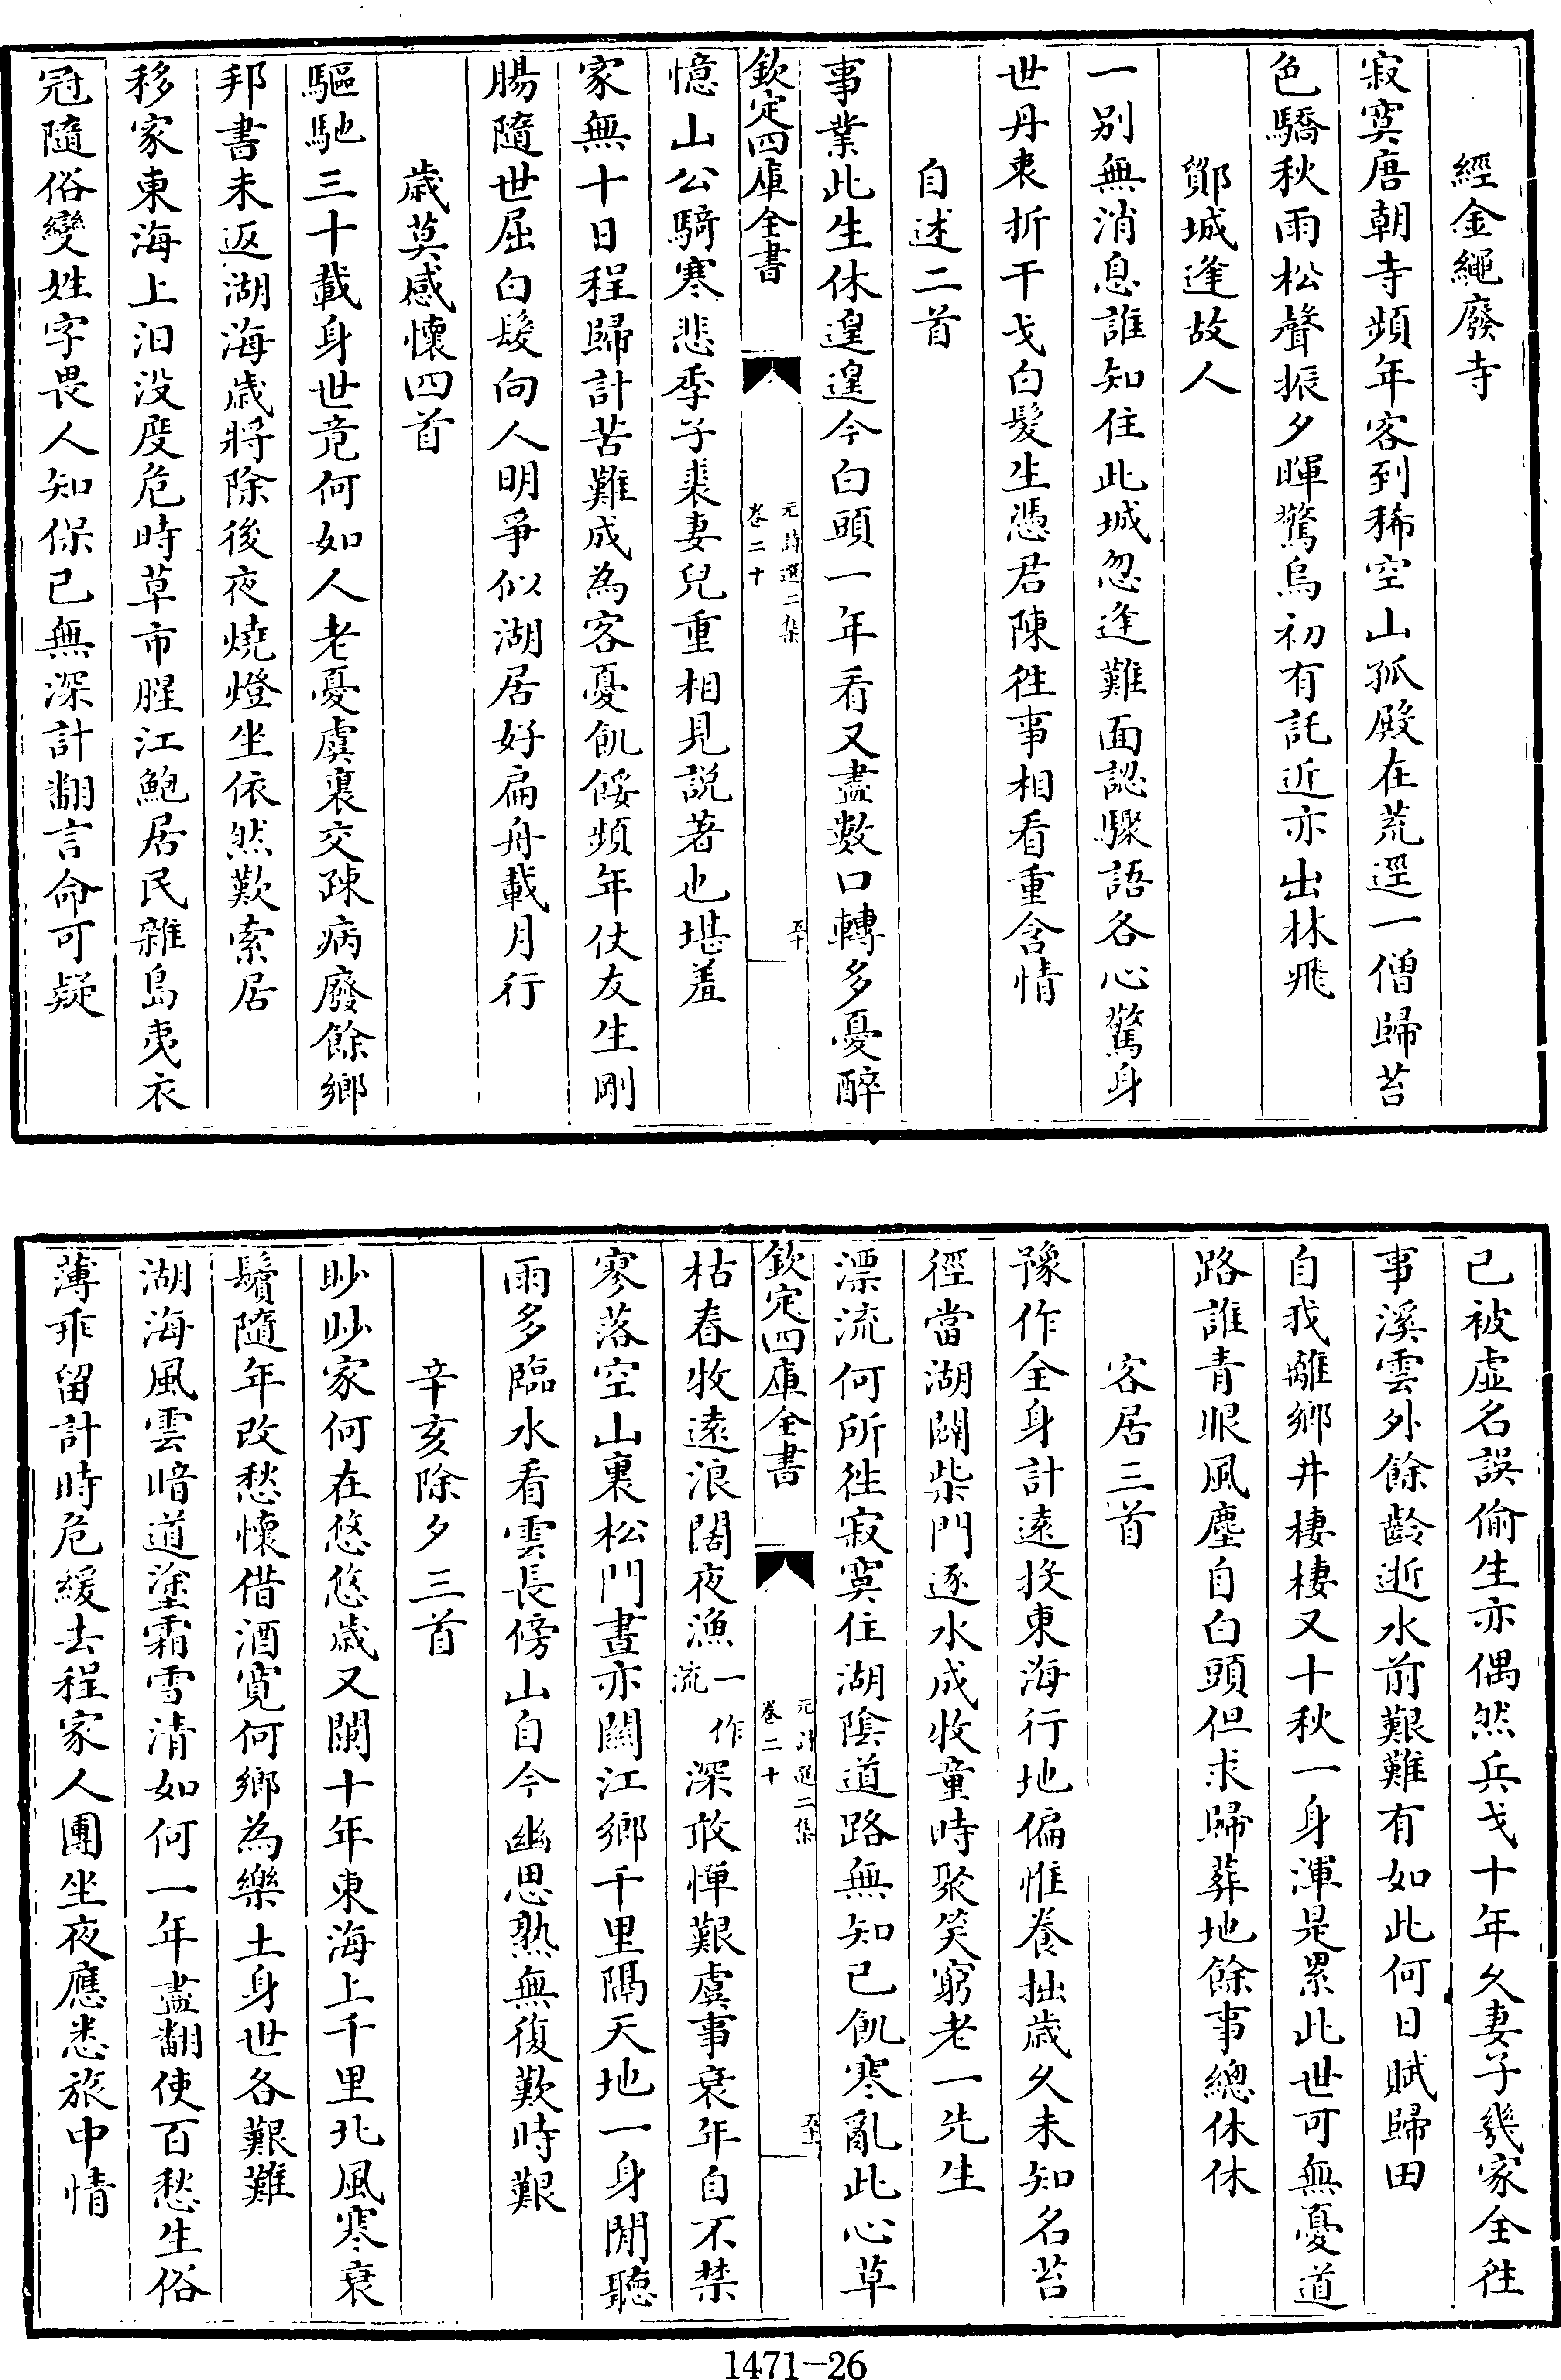 經金繩廢寺
寂寞唐朝寺頻年客到稀空山孤殿在荒逕一僧歸苔
色驕秋雨松聲振夕暉驚烏初有託近亦出林飛
鄮城逢故人
一别無消息誰知住此城忽逢難面認驟語各心驚身
世丹衷折干戈白髮生憑君陳徃事相看重含情
自述二首
事業此生休遑遑今白頭一年看又盡數口轉多憂醉
欽定四庫全書
元詩選二集
卷二十
五十
憶山公騎寒悲季子裘妻兒重相見説著也堪羞
家無十日程歸計苦難成為客憂飢餒頻年仗友生剛
腸隨世屈白髮向人明爭似湖居好扁舟載月行
歳莫感懷四首
驅馳三十載身世竟何如人老憂虞裏交疎病廢餘鄉
邦書未返湖海歳將除後夜燒燈坐依然歎索居
移家東海上汩没度危時草市腥江鮑居民雜島夷衣
冠隨俗變姓字畏人知保已無深計翻言命可疑
已被虚名誤偷生亦偶然兵戈十年久妻子幾家全徃
事溪雲外餘齡逝水前艱難有如此何日賦歸田
自我離鄉井棲棲又十秋一身渾是累此世可無憂道
路誰青眼風塵自白頭但求歸葬地餘事總休休
客居三首
豫作全身計逺投東海行地偏惟養拙歳久未知名苔
徑當湖闢柴門逐水成牧童時聚笑窮老一先生
漂流何所徃寂寞住湖隂道路無知已飢寒亂此心草
欽定四庫全書
元詩選二集
卷二十
五十一
枯春牧逺浪闊夜漁一作流深敢憚艱虞事衰年自不禁
寥落空山裏松門晝亦關江鄉千里隔天地一身閒聽
雨多臨水看雲長傍山自今幽思熟無復歎時艱
辛亥除夕三首
眇眇家何在悠悠歳又闌十年東海上千里北風寒衰
鬢隨年改愁懷借酒寛何鄉為樂土身世各艱難
湖海風雲暗道塗霜雪清如何一年盡翻使百愁生俗
薄乖留計時危緩去程家人團坐夜應悉旅中情
1471-26